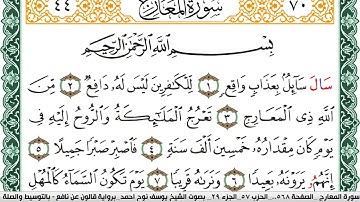 ٤٤ سورة المعارج ٧٠
بِسْمِ اللَّهِ الرَّحْمَٰنِ الرَّحِيمِ
سَالَ سَآئِلٌۢ بِعَذَابٖ وَاقِعٖ ١ لِّلْكَٰفِرِينَ لَيْسَ لَهُۥ دَافِعٞ ٢ مِّنَ
اَ۬للَّهِ ذِے اِ۬لْمَعَارِجِ ٣ تَعْرُجُ اُ۬لْمَلَٰٓئِكَةُ وَالرُّوحُ إِلَيْهِ فِے
يَوْمٖ كَانَ مِقْدَارُهُۥ خَمْسِينَ أَلْفَ سَنَةٖ ٤ فَاصْبِرْ صَبْراٗ جَمِيلاً ٥
اِنَّهُمْ يَرَوْنَهُۥ بَعِيداٗ ٦ وَنَر۪يٰهُ قَرِيباٗ ٧ يَوْمَ تَكُونُ اُ۬لسَّمَآءُ كَالْمُهْلِ
سورة المعارج الصفحة ٥٦٨ الحزب ٥٧ الجزء ٢٩ بصوت الشيخ يوسف نوح احمد برواية قالون عن نافع - بالتوسيط والصلة